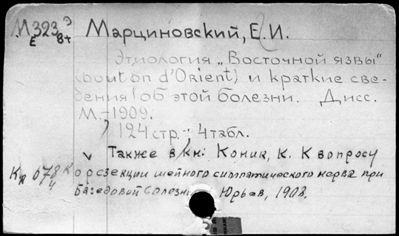 М323 э Марциновский, Е. И.
Е Вт
Этиология „Восточной язвы"
(bouton d'Orient) и краткие све-
дения об этой болезни. Дисс.
М-1909.
124 стр.; 4 табл.
Также в кн: Коник, К. К вопросу
о резекции шейного симпатического нерва при
Базедовой болезни Юрьев, 1908.